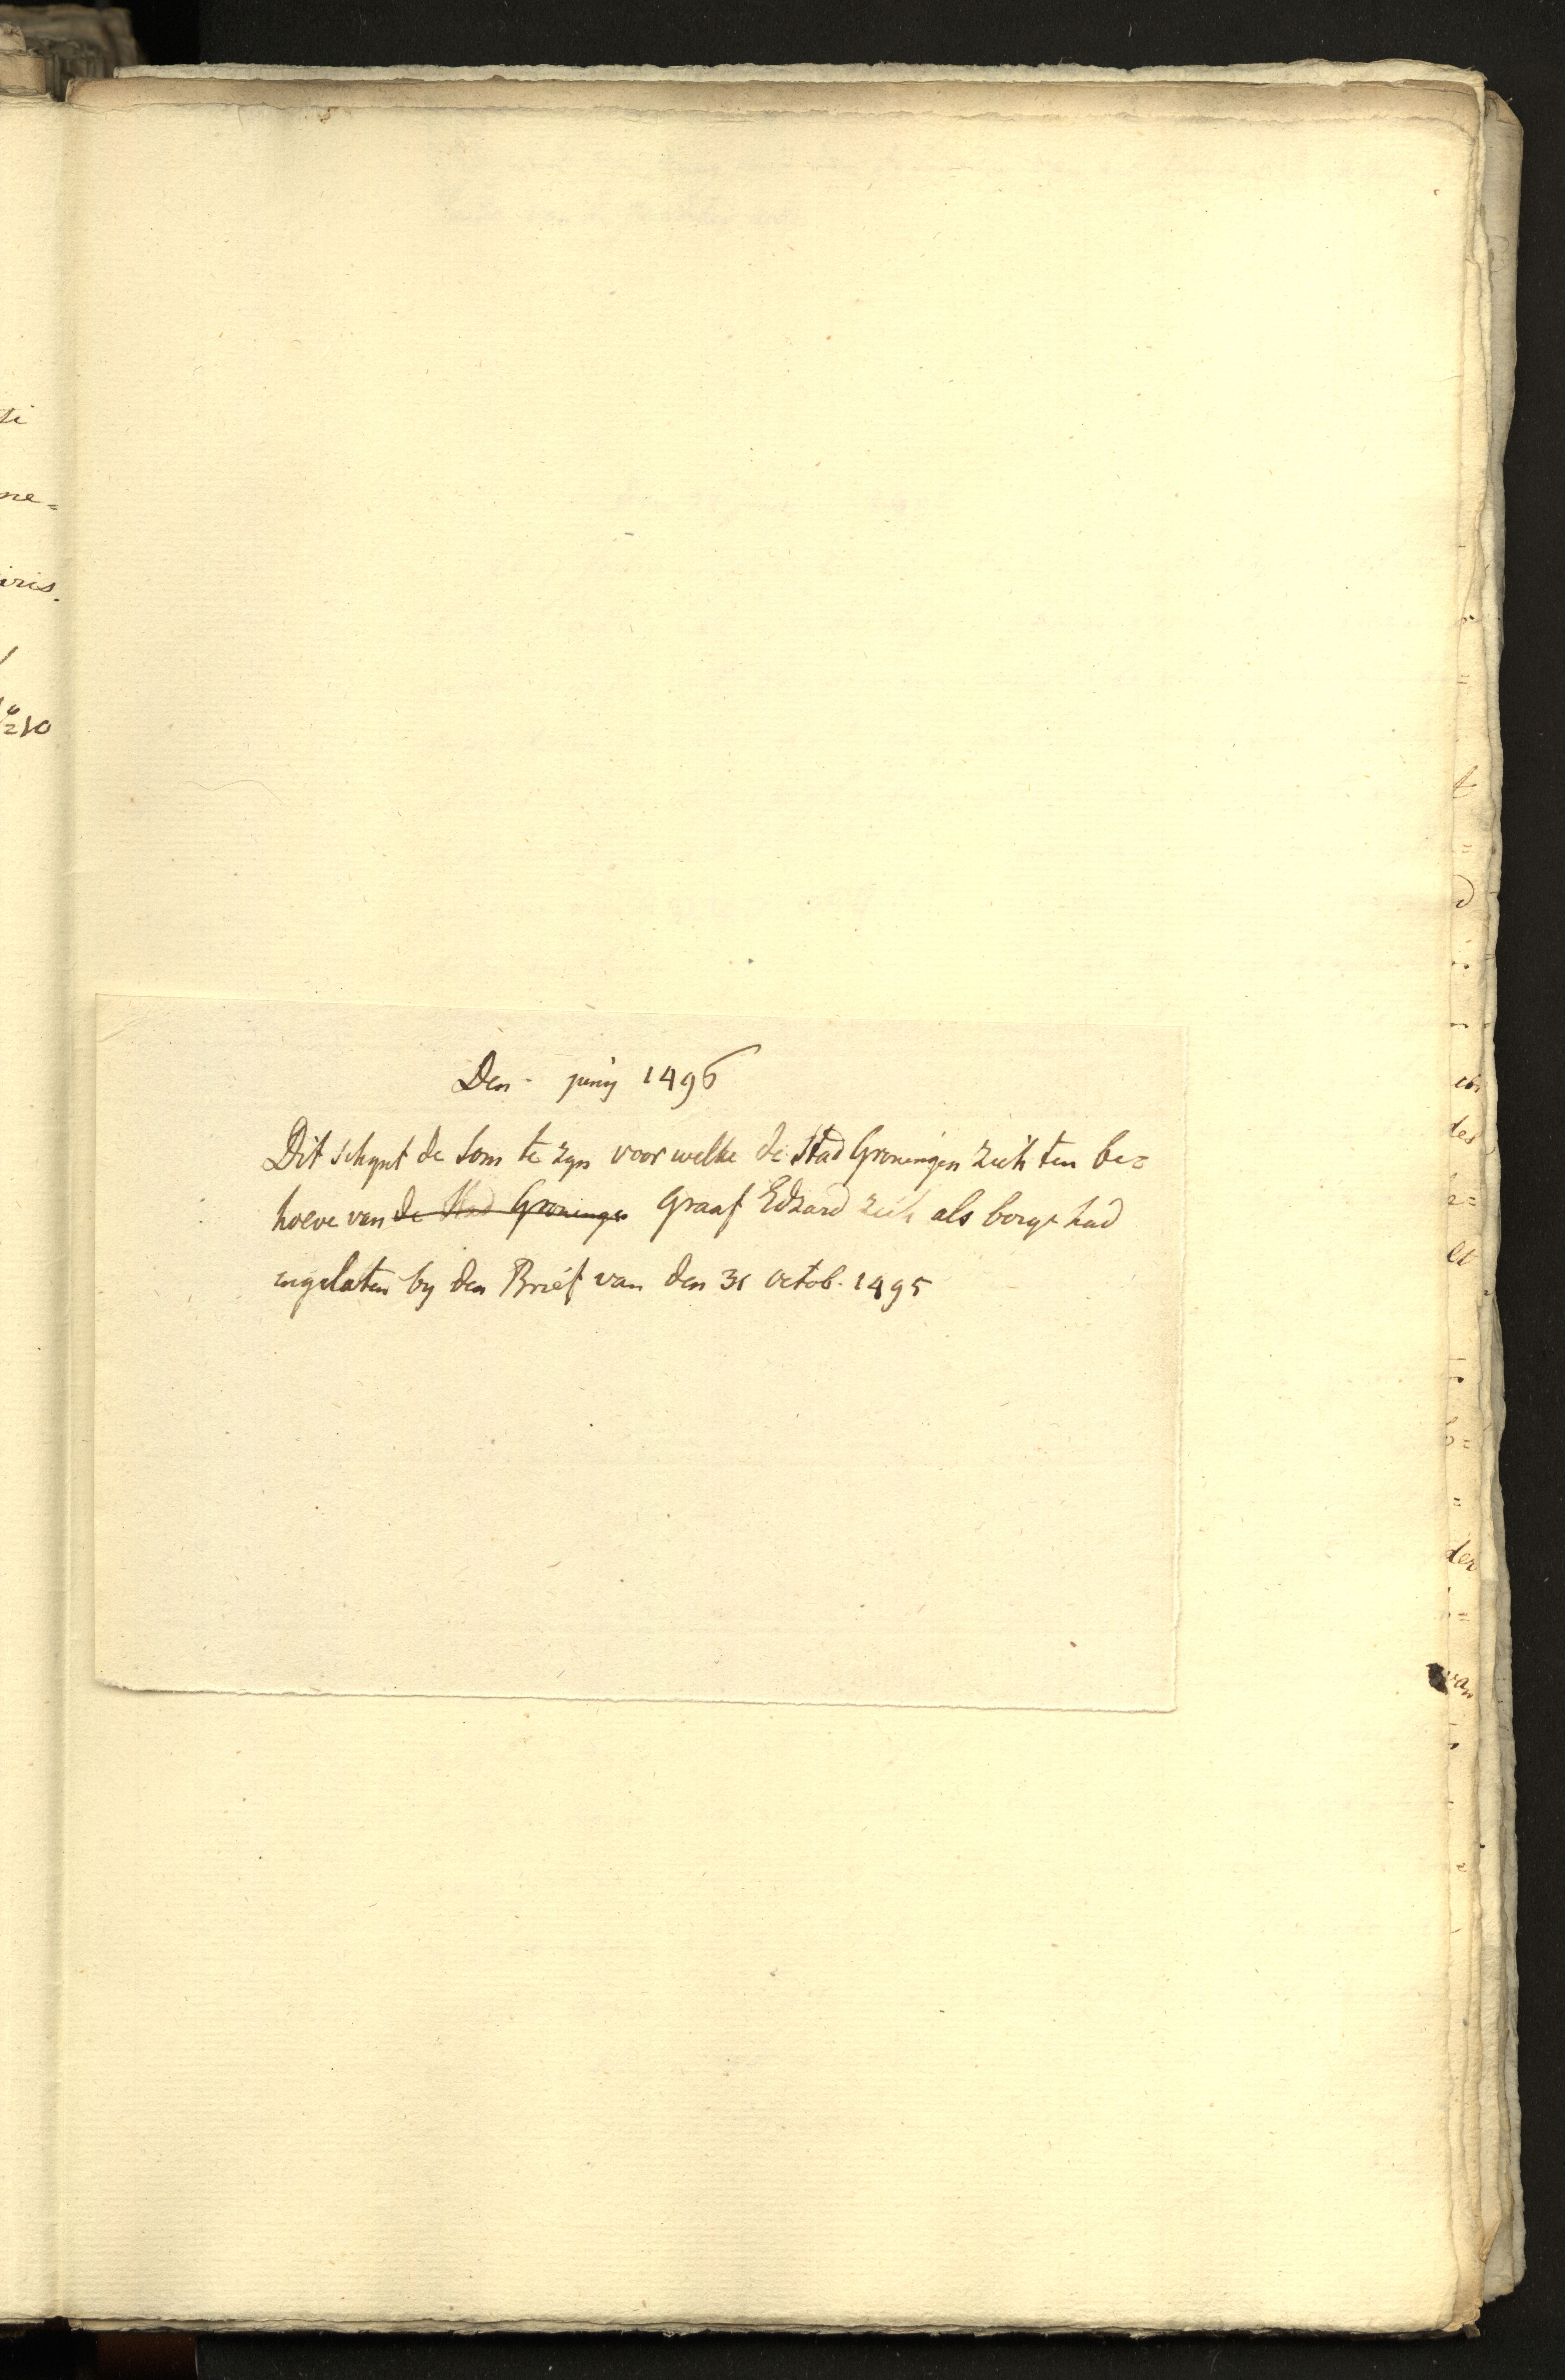 Den - junij 1496
Dit schynt de som te zyn voor welke de Stad Groningen zich ten be=
hoeve van de Stad Groningen Graaf Edzard zich als borge had
ingelaten by den Brief van den 31 octob. 1495
ti
ne=
iris.
210
t
d
des
et
der
van